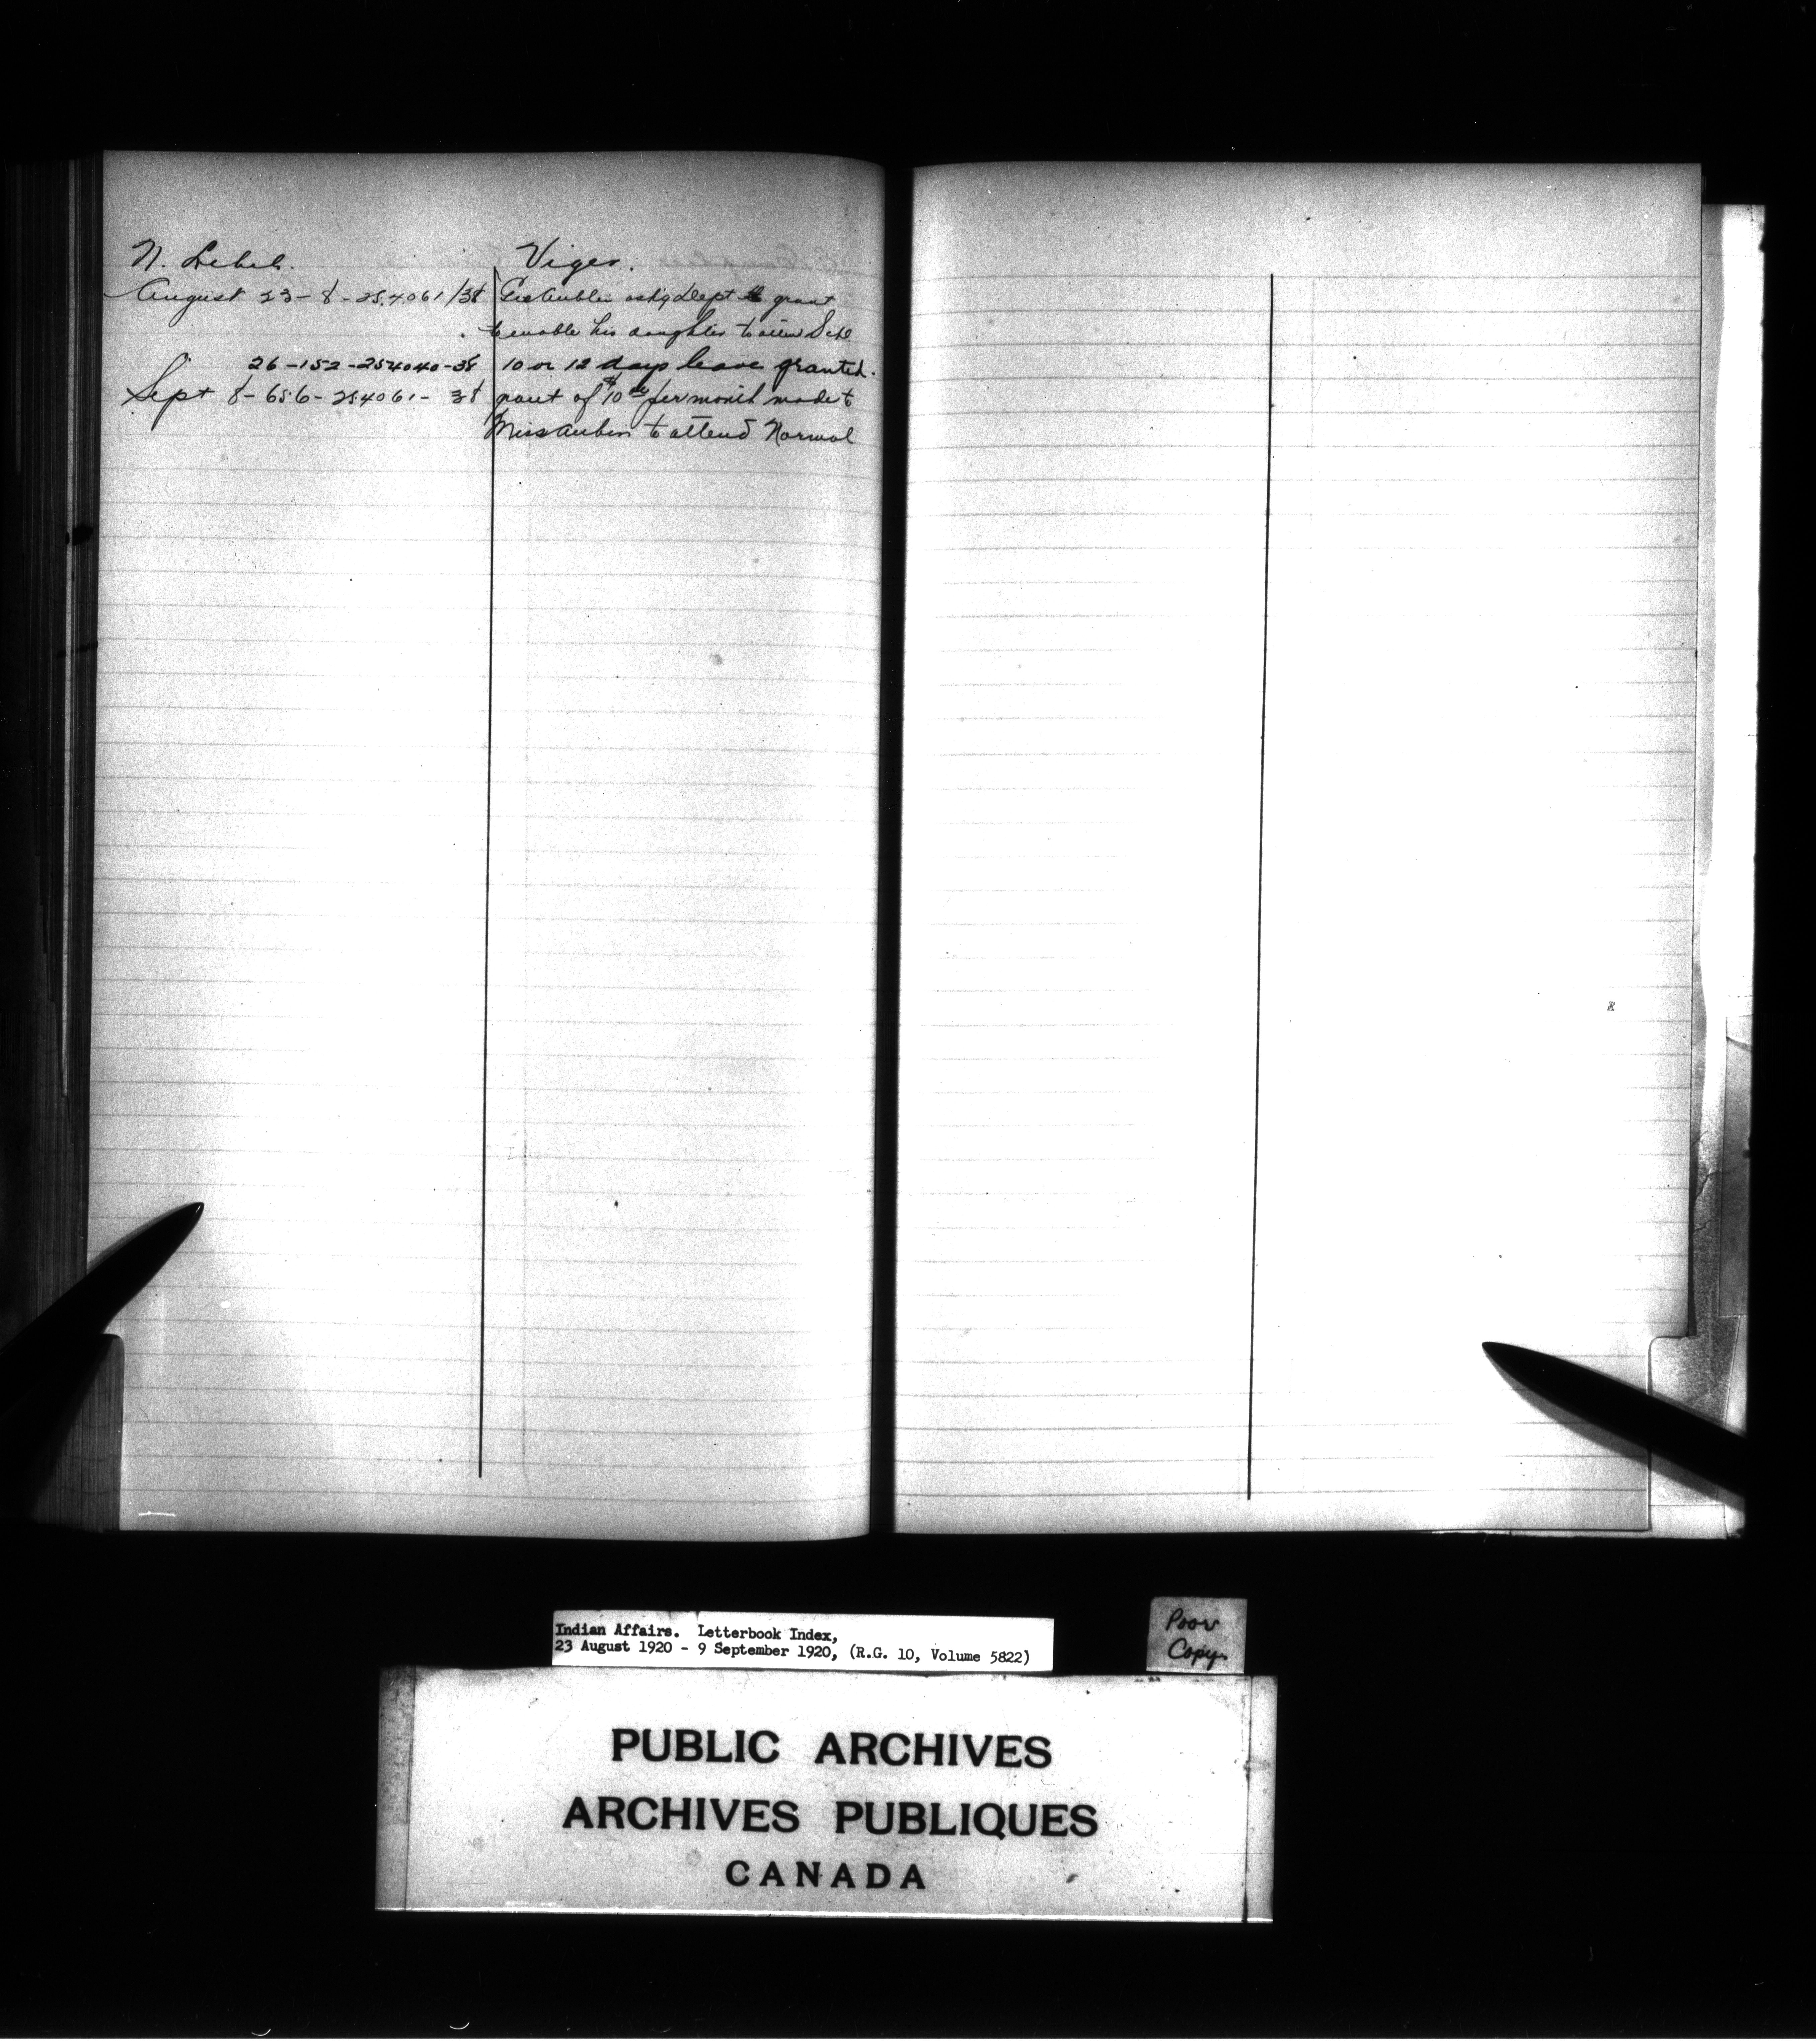 N. Lebel. Viger.
August 23 - 8 - 254061/38 Geo Aubin askg Dept to grant
to enable his daughter to attend Schl
26 - 152 - 254040 - 38 10 or 12 days leave granted.
Sept 8 - 656 - 254061 - 38 grant of $10.00 per month made to
Miss Aubin to attend Normal
Indian Affairs. Letterbook Index,
23 August 1920 - 9 September 1920, (R.G. 10, Volume 5822)
Poor
Copy.
PUBLIC ARCHIVES
ARCHIVES PUBLIQUES
CANADA